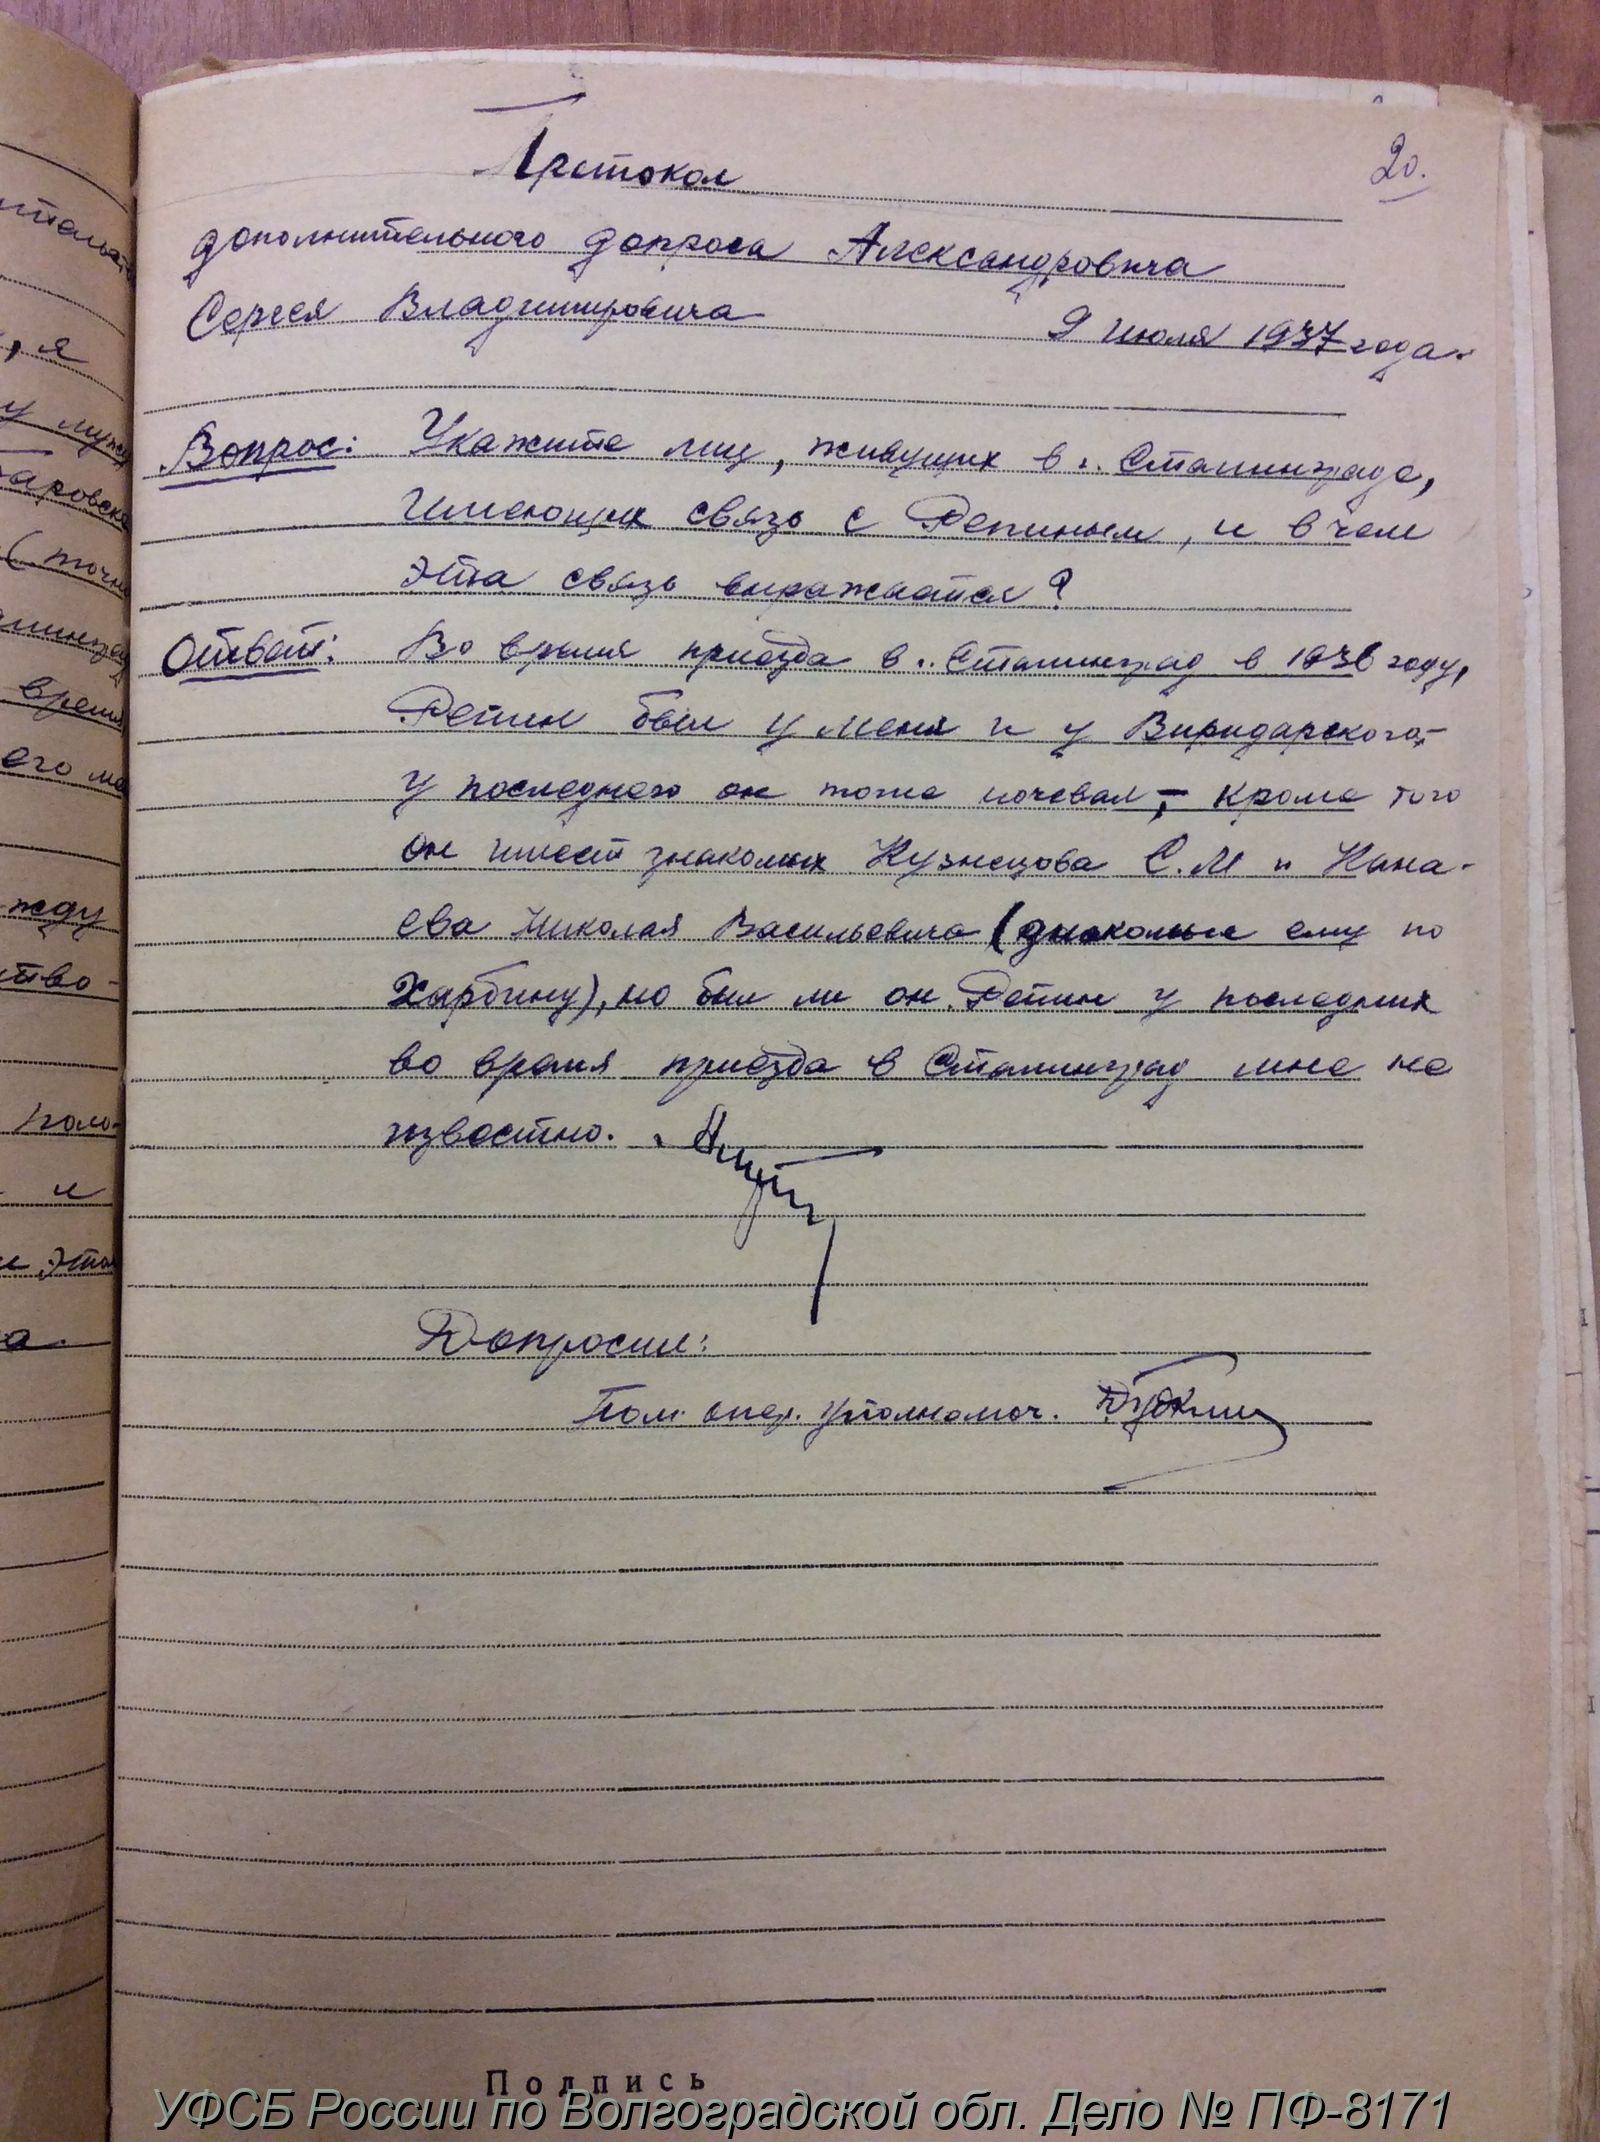 20.
Протокол
дополнительного допроса Александровича
Сергея Владимировича 9 июля 1937 года.
Вопрос: Укажите лиц, живущих в г. Сталинграде,
имеющих связь с Репиным, и в чем
эта связь выражается?
Ответ: Во время приезда в г. Сталинград в 1936 году,
Репин был у меня и у Виридарского,
у последнего он тоже ночевал, – кроме того
он имеет знакомых Кузнецова С.М и Кана-
ева Николая Васильевича (знакомые ему по
Харбину), но был ли он Репин у последних
во время приезда в Сталинград мне не
известно.
Допросил:
Пом. опер. уполномоч.
Подпись
УФСБ России по Волгоградской обл. Дело № ПФ-8171
, я
у мужу
(точно
время
его
жду
ство-
поло-
и